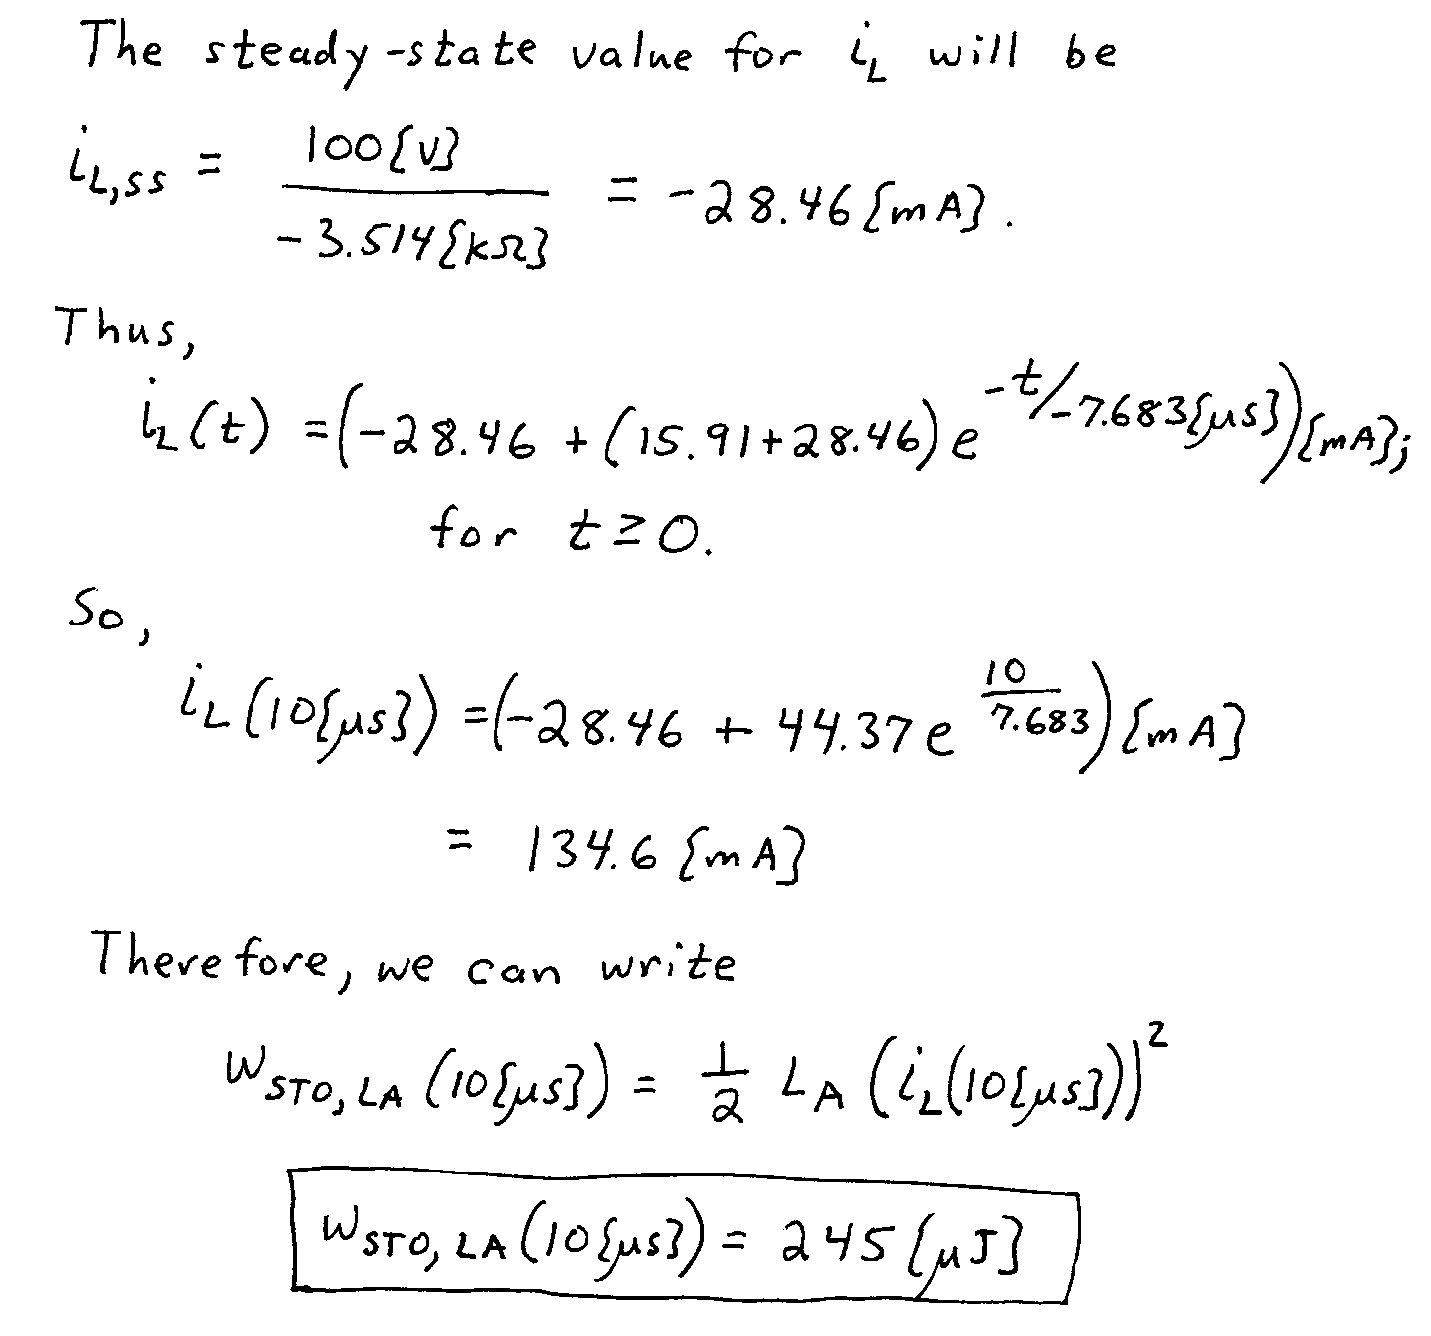 The steady-state value for i_L will be
i_L,ss = 100{V} / -3.514{kΩ} = -28.46{mA}.
Thus,
i_L(t) = (-28.46 + (15.91+28.46) e^(-t/-7.683{μs})){mA};
for t ≥ 0.
So,
i_L(10{μs}) = (-28.46 + 44.37 e^(10/7.683)){mA}
= 134.6 {mA}
Therefore, we can write
W_STO,LA (10{μs}) = 1/2 L_A (i_L(10{μs}))^2
W_STO,LA (10{μs}) = 245 {μJ}